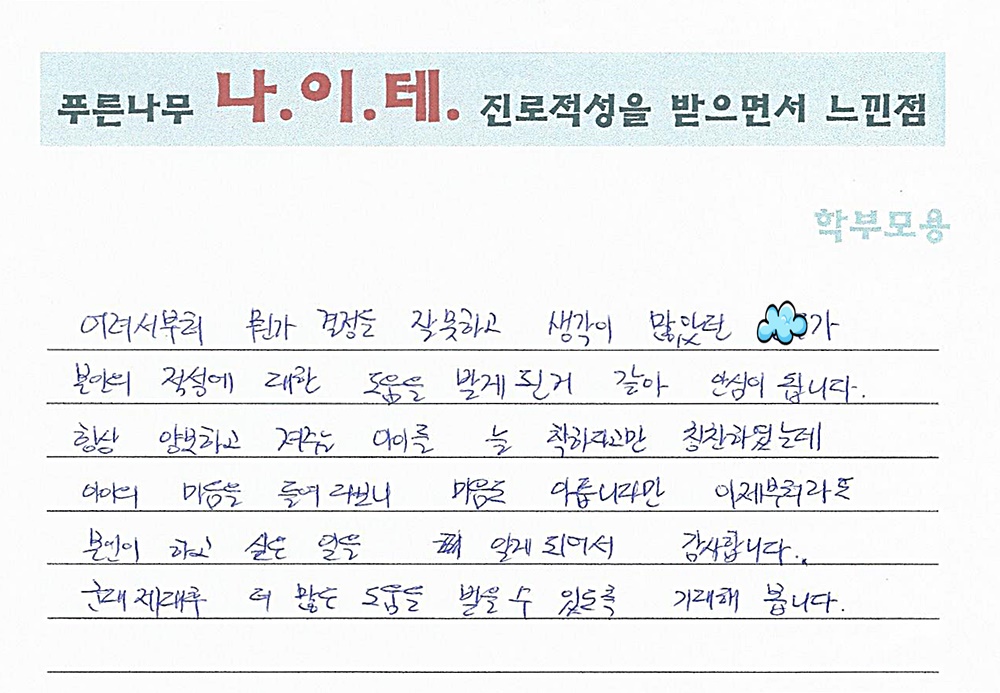 푸른나무 나.이.테. 진로적성을 받으면서 느낀점
학부모용
어려서부터 뭔가 결정을 잘못하고 생각이 많았던 가
본인의 적성에 대한 도움을 받게 된거 같아 안심이 됩니다.
항상 양보하고 져주는 아이를 늘 착하다고만 칭찬하였는데
아이의 마음을 들여다보니 마음은 아픕니다만 이제부터라도
본인이 하고 싶은 일을 알게 되어서 감사합니다.
군대 제대후 더 많은 도움을 받을 수 있도록 기대해 봅니다.